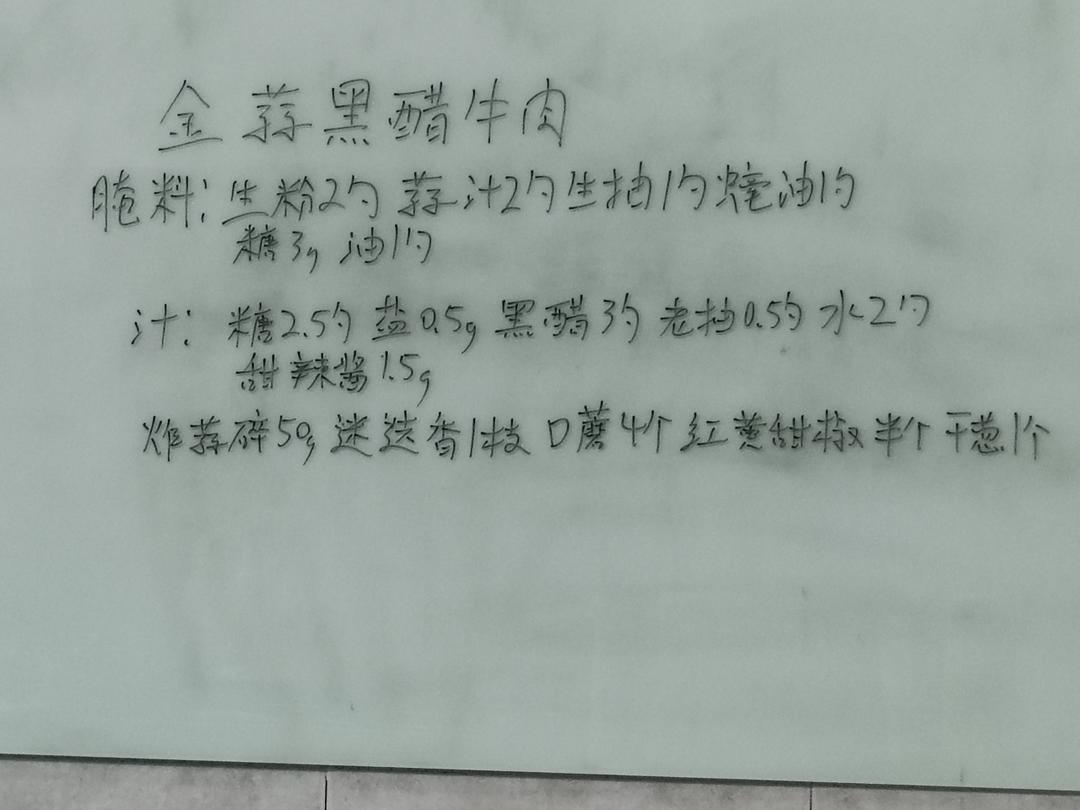 金蒜黑醋牛肉
腌料：生粉2勺 蒜汁2勺生抽1勺蚝油1勺
糖3g 油1勺
汁：糖2.5勺 盐0.5g 黑醋3勺 老抽0.5勺 水2勺
甜辣酱1.5g
炸蒜碎50g 迷迭香1枝 口蘑4个 红黄甜椒半个 干葱1个